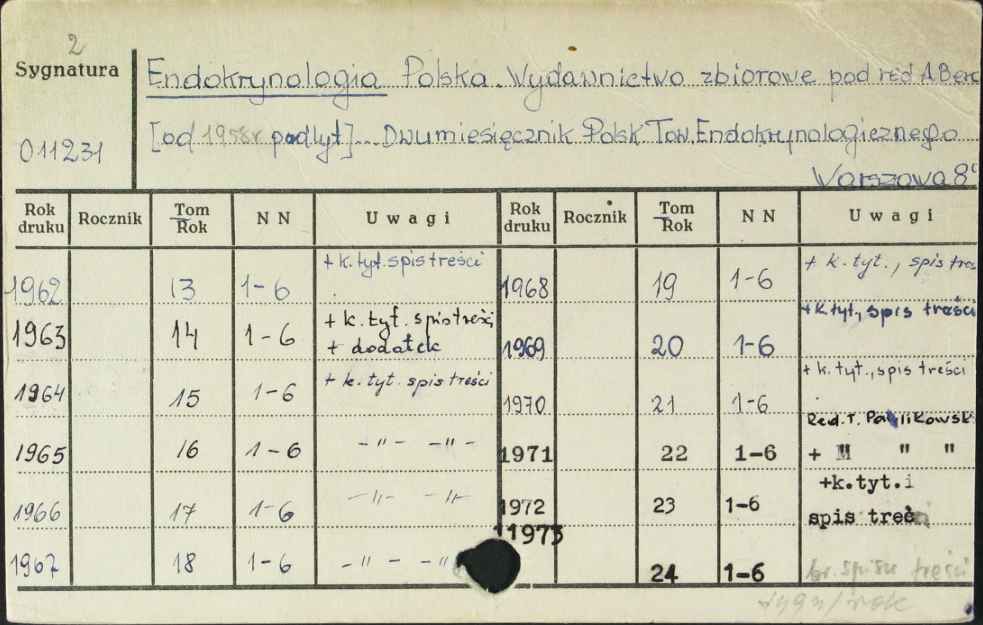 2
Sygnatura
011231
Endokrynologia Polska. Wydawnictwo zbiorowe pod red A.Ber
[od 1958r podtyt]... Dwumiesięcznik Polsk Tow. Endokrynologicznego
Warszawa 8°
Rok druku Rocznik Tom Rok N N Uwagi Rok druku Rocznik Tom Rok N N Uwagi
1962 13 1-6 + k. tyt. spis treści
1963 14 1-6 + k. tyt. spis treści
+ dodatek
1964 15 1-6 + k. tyt. spis treści
1965 16 1-6 -"- -"-
1966 17 1-6 -"- -"-
1967 18 1-6 -"- -"
1968 19 1-6 + k. tyt., spis tres
1969 20 1-6 +k tyt., spis treści
1970 21 1-6 + k. tyt., spis treści
Red. T. Pawlikowsk
1971 22 1-6 + " " "
1972 23 1-6 +k.tyt.i
spis treś
1973 24 1-6 br. spisu treści